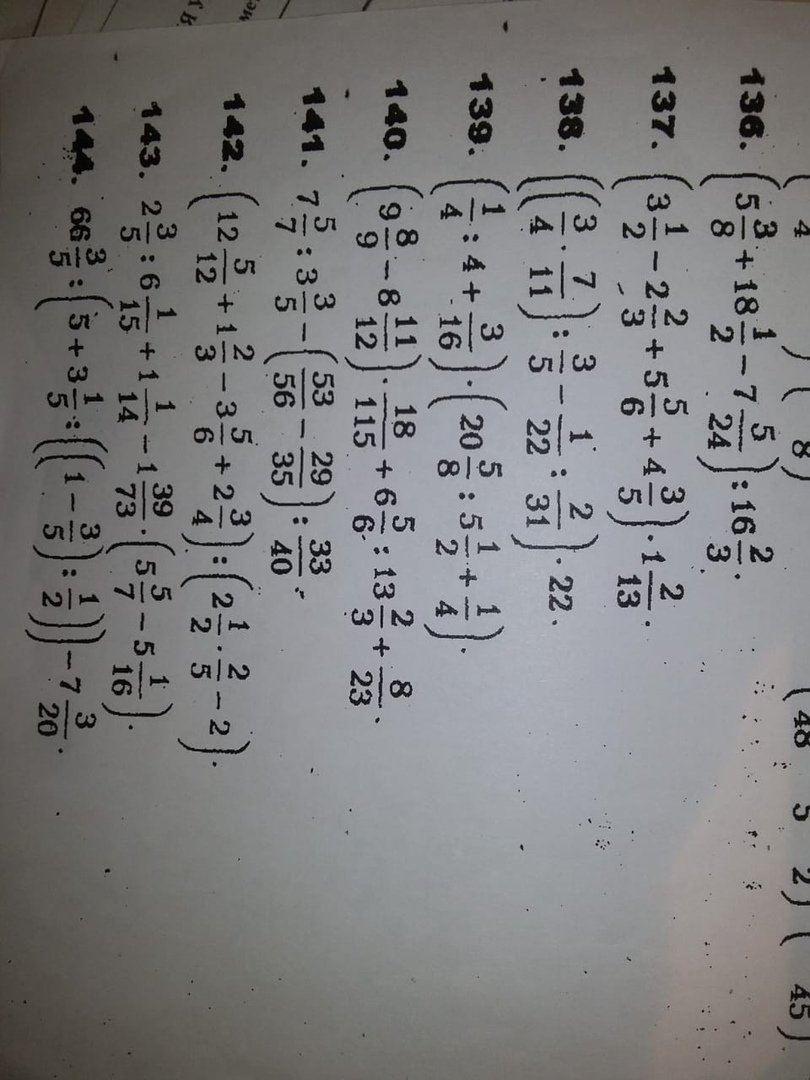 4 ) ( 8 ) ( 48 5 2 ) ( 45 )
136. (5 3/8 + 18 1/2 − 7 5/24) : 16 2/3.
137. (3 1/2 − 2 2/3 + 5 5/6 + 4 3/5) · 1 2/13.
138. ((3/4 · 7/11) : 3/5 − 1/22 : 2/31) · 22.
139. (1/4 : 4 + 3/16) · (20 5/8 : 5 1/2 + 1/4).
140. (9 8/9 − 8 11/12) · 18/115 + 6 5/6 : 13 2/3 + 8/23.
141. 7 5/7 : 3 3/5 − (53/56 − 29/35) : 33/40.
142. (12 5/12 + 1 2/3 − 3 5/6 + 2 3/4) : (2 1/2 · 2/5 − 2).
143. 2 3/5 : 6 1/15 + 1 1/14 − 1 39/73 · (5 5/7 − 5 1/16).
144. 66 3/5 : (5 + 3 1/5 : ((1 − 3/5) : 1/2)) − 7 3/20.